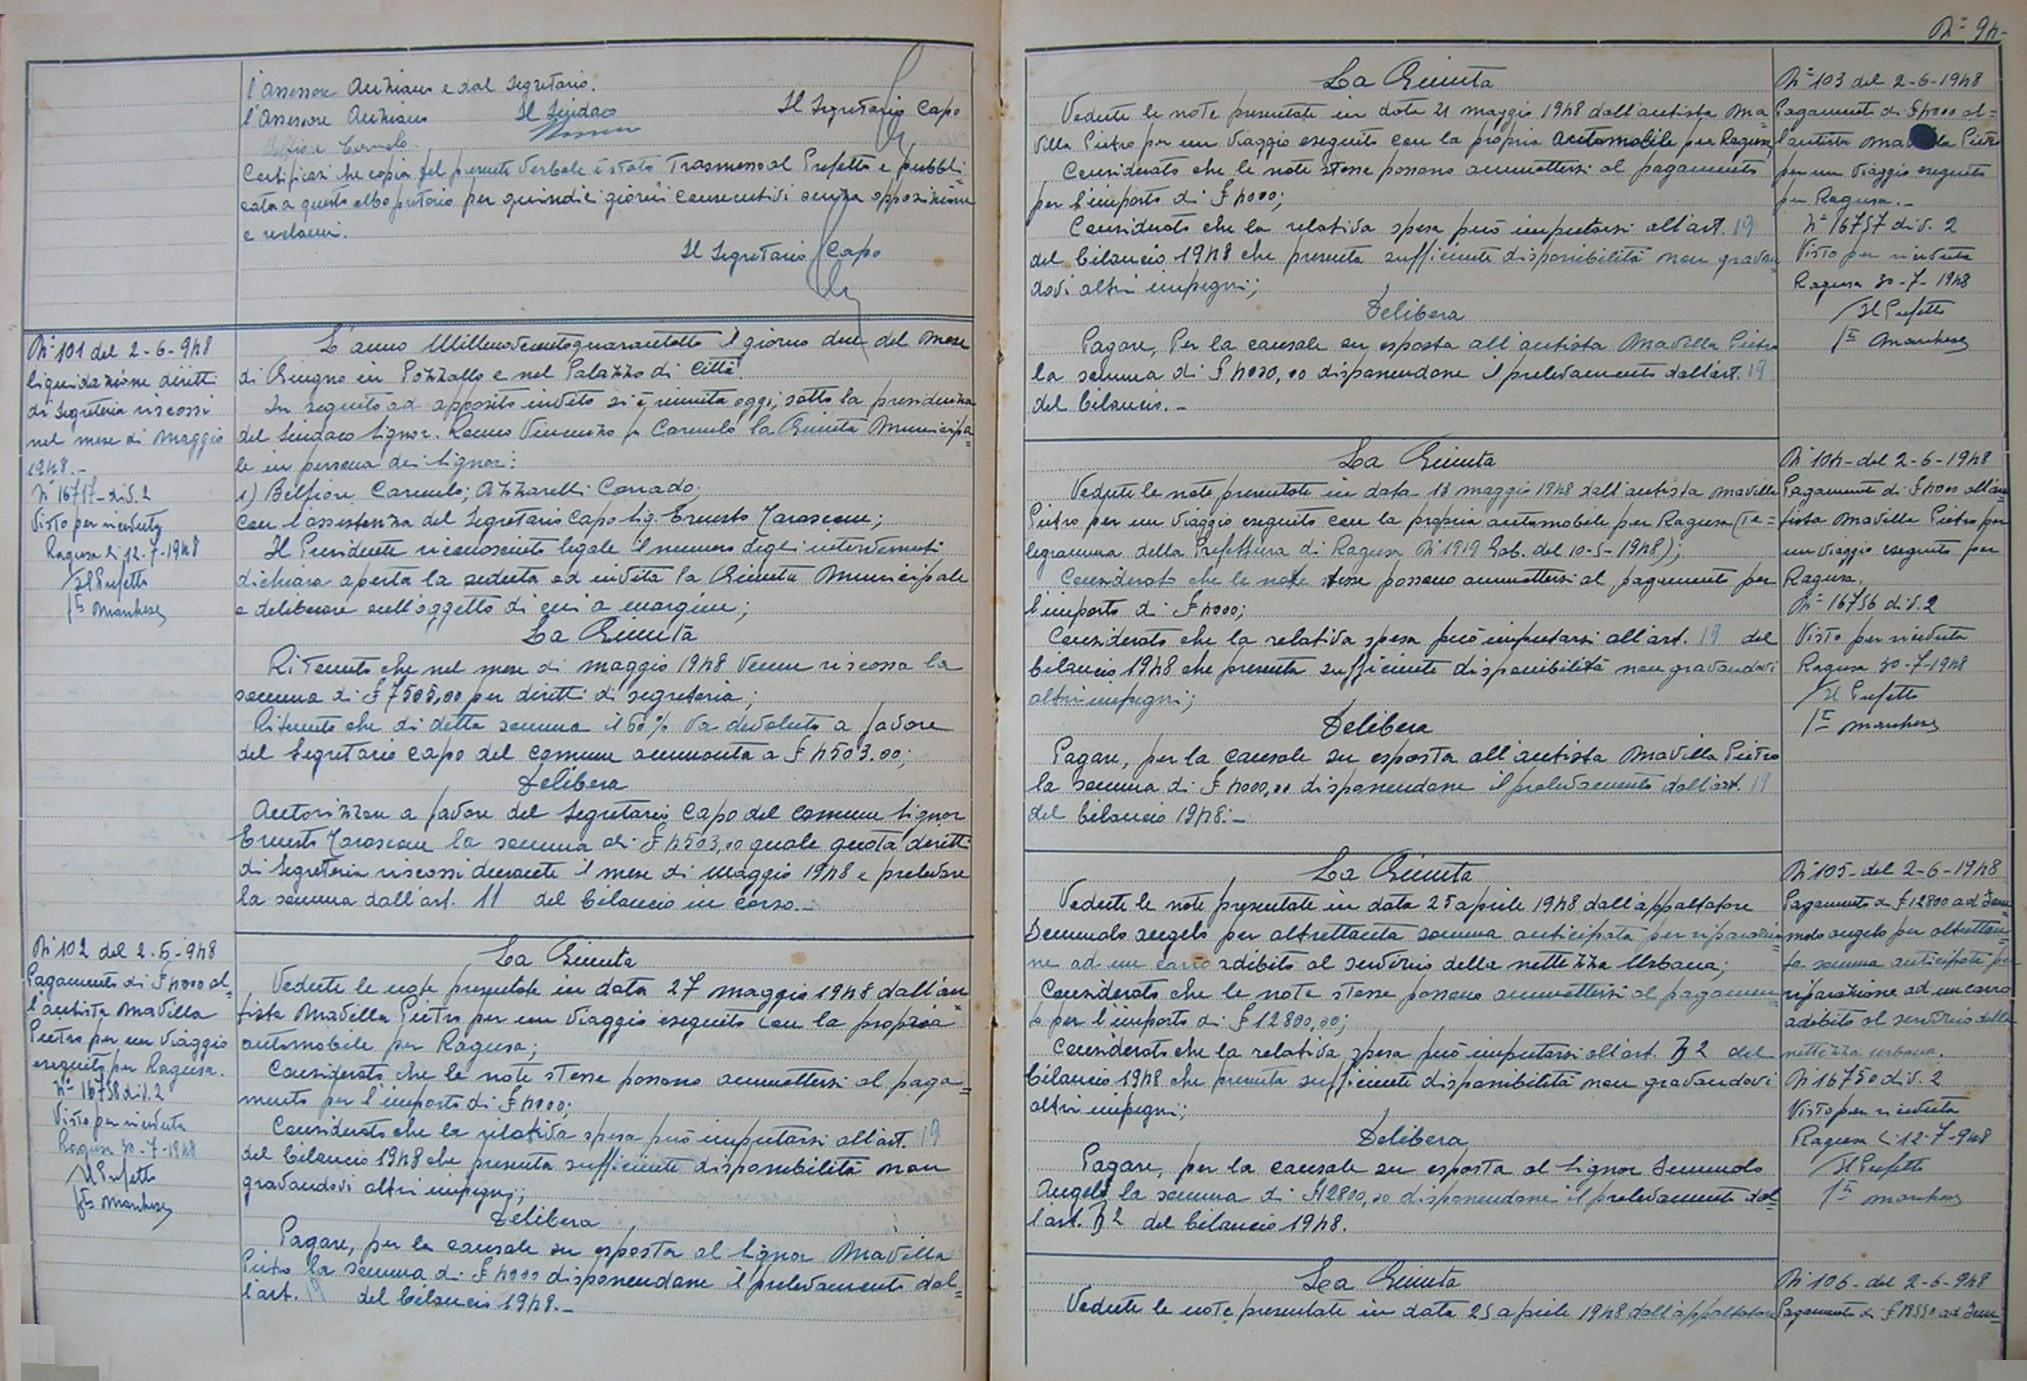 l'Assessore Anziano e dal Segretario.
l'Assessore Anziano Il Sindaco Il Segretario Capo
Belfiore Carmelo
Certificasi che copia del presente Verbale è stato Trasmesso al Prefetto e pubbli=
cata a questo albo pretorio per quindici giorni consecutivi senza opposizione
e reclami.
Il Segretario Capo
N° 101 del 2-6-948
liquidazione diritti
di Segreteria riscossi
nel mese di Maggio
1948.-
N° 16757-div.2
Visto per ricevuta
Ragusa li 12-7-1948
Il Prefetto
Fto Marchese
L'anno Millenovecentoquarantotto il giorno due del Mese
di Giugno in Pozzallo e nel Palazzo di Città.
In seguito ad apposito invito si è riunita oggi, sotto la presidenza
del Sindaco Signor. Vincenzo fu Carmelo la Giunta Municipa=
le in persona dei Signori:
1) Belfiore Carmelo; Azzarelli Corrado;
con l'assistenza del Segretario Capo Sig. Ernesto
Il Presidente riconosciuto legale il numero degli intervenuti
dichiara aperta la seduta ed invita la Giunta Municipale
a deliberare sull'oggetto di cui a margine;
La Giunta
Ritenuto che nel mese di maggio 1948 venne riscossa la
somma di £ 7505,00 per diritti di segreteria;
Ritenuto che di detta somma il 60% va devoluto a favore
del Segretario capo del comune ammonta a £ 4503.00;
Delibera
Autorizzare a favore del Segretario Capo del comune Signor
Ernesto la somma di £ 4503,00 quale quota diritti
di Segreteria riscossi durante il mese di maggio 1948 e prelevare
la somma dall'art. 11 del bilancio in corso.-
N° 102 del 2-6-948
Pagamento di £ 4000 al=
l'autista Mavilla
Pietro per un viaggio
eseguito per Ragusa.
N° 16758 div.2
Visto per ricevuta
Ragusa 30-7-1948
Il Prefetto
Fto Marchese
La Giunta
Vedute le note presentate in data 27 maggio 1948 dall'au=
tista Mavilla Pietro per un viaggio eseguito con la propria
automobile per Ragusa;
Considerato che le note stesse possono ammettersi al paga=
mento per l'importo di £ 4000;
Considerato che la relativa spesa può imputarsi all'art. 19
del bilancio 1948 che presenta sufficiente disponibilità non
gravandovi altri impegni;
Delibera
Pagare, per la causale su esposta al Signor Mavilla
Pietro la somma di £ 4000 disponendone il prelevamento dal=
l'art. 19 del bilancio 1948.-
N° 94-
La Giunta
Vedute le note presentate in data 21 maggio 1948 dall'autista Ma=
villa Pietro per un viaggio eseguito con la propria automobile per Ragusa;
Considerato che le note stesse possono ammettersi al pagamento
per l'importo di £ 4000;
Considerato che la relativa spesa può imputarsi all'art. 19
del bilancio 1948 che presenta sufficiente disponibilità non gravan=
dovi altri impegni;
Delibera
Pagare, Per la causale su esposta all'autista Mavilla Pietro
la somma di £ 4000,00 disponendone il prelevamento dall'art. 19
del bilancio.-
N° 103 del 2-6-1948
Pagamento di £ 4000 al=
l'autista Pietro
per un viaggio eseguito
per Ragusa.-
N° 16757 div. 2
Visto per ricevuta
Ragusa 30-7-1948
Il Prefetto
Fto Marchese
La Giunta
Vedute le note presentate in data 13 maggio 1948 dall'autista Mavilla
Pietro per un viaggio eseguito con la propria automobile per Ragusa (Te=
legramma della Prefettura di Ragusa N° 1919 Gab. del 10-5-1948);
Considerato che le note stesse possono ammettersi al pagamento per
l'importo di £ 4000;
Considerato che la relativa spesa può imputarsi all'art. 19 del
bilancio 1948 che presenta sufficiente disponibilità non gravandovi
altri impegni;
Delibera
Pagare, per la causale su esposta all'autista Mavilla Pietro
la somma di £ 4000,00 disponendone il prelevamento dall'art. 19
del bilancio 1948.-
N° 104- del 2-6-1948
Pagamento di £ 4000 all'au=
tista Mavilla Pietro per
un viaggio eseguito per
Ragusa.
N° 16756 div.2
Visto per ricevuta
Ragusa 30-7-1948
Il Prefetto
Fto Marchese
La Giunta
Vedute le note presentate in data 25 aprile 1948 dall'appaltatore
Angelo per altrettanta somma anticipata per riparazio=
ne ad un carro adibito al servizio della nettezza Urbana;
Considerato che le note stesse possono ammettersi al pagamen=
to per l'importo di £ 12800,00;
Considerato che la relativa spesa può imputarsi all'art. 32 del
bilancio 1948 che presenta sufficiente disponibilità non gravandovi
altri impegni;
Delibera
Pagare, per la causale su esposta al Signor
Angelo la somma di £ 12800,00 disponendone il prelevamento dal=
l'art. 32 del bilancio 1948.
N° 105- del 2-6-1948
Pagamento di £ 12800 ad
Angelo per altrettan=
ta somma anticipata per
riparazione ad un carro
adibito al servizio della
nettezza urbana.
N° 16750 div. 2
Visto per ricevuta
Ragusa li 12-7-948
Il Prefetto
Fto Marchese
La Giunta
Vedute le note presentate in data 25 aprile 1948 dall'appaltatore
N° 106- del 2-6-948
Pagamento di £ ad